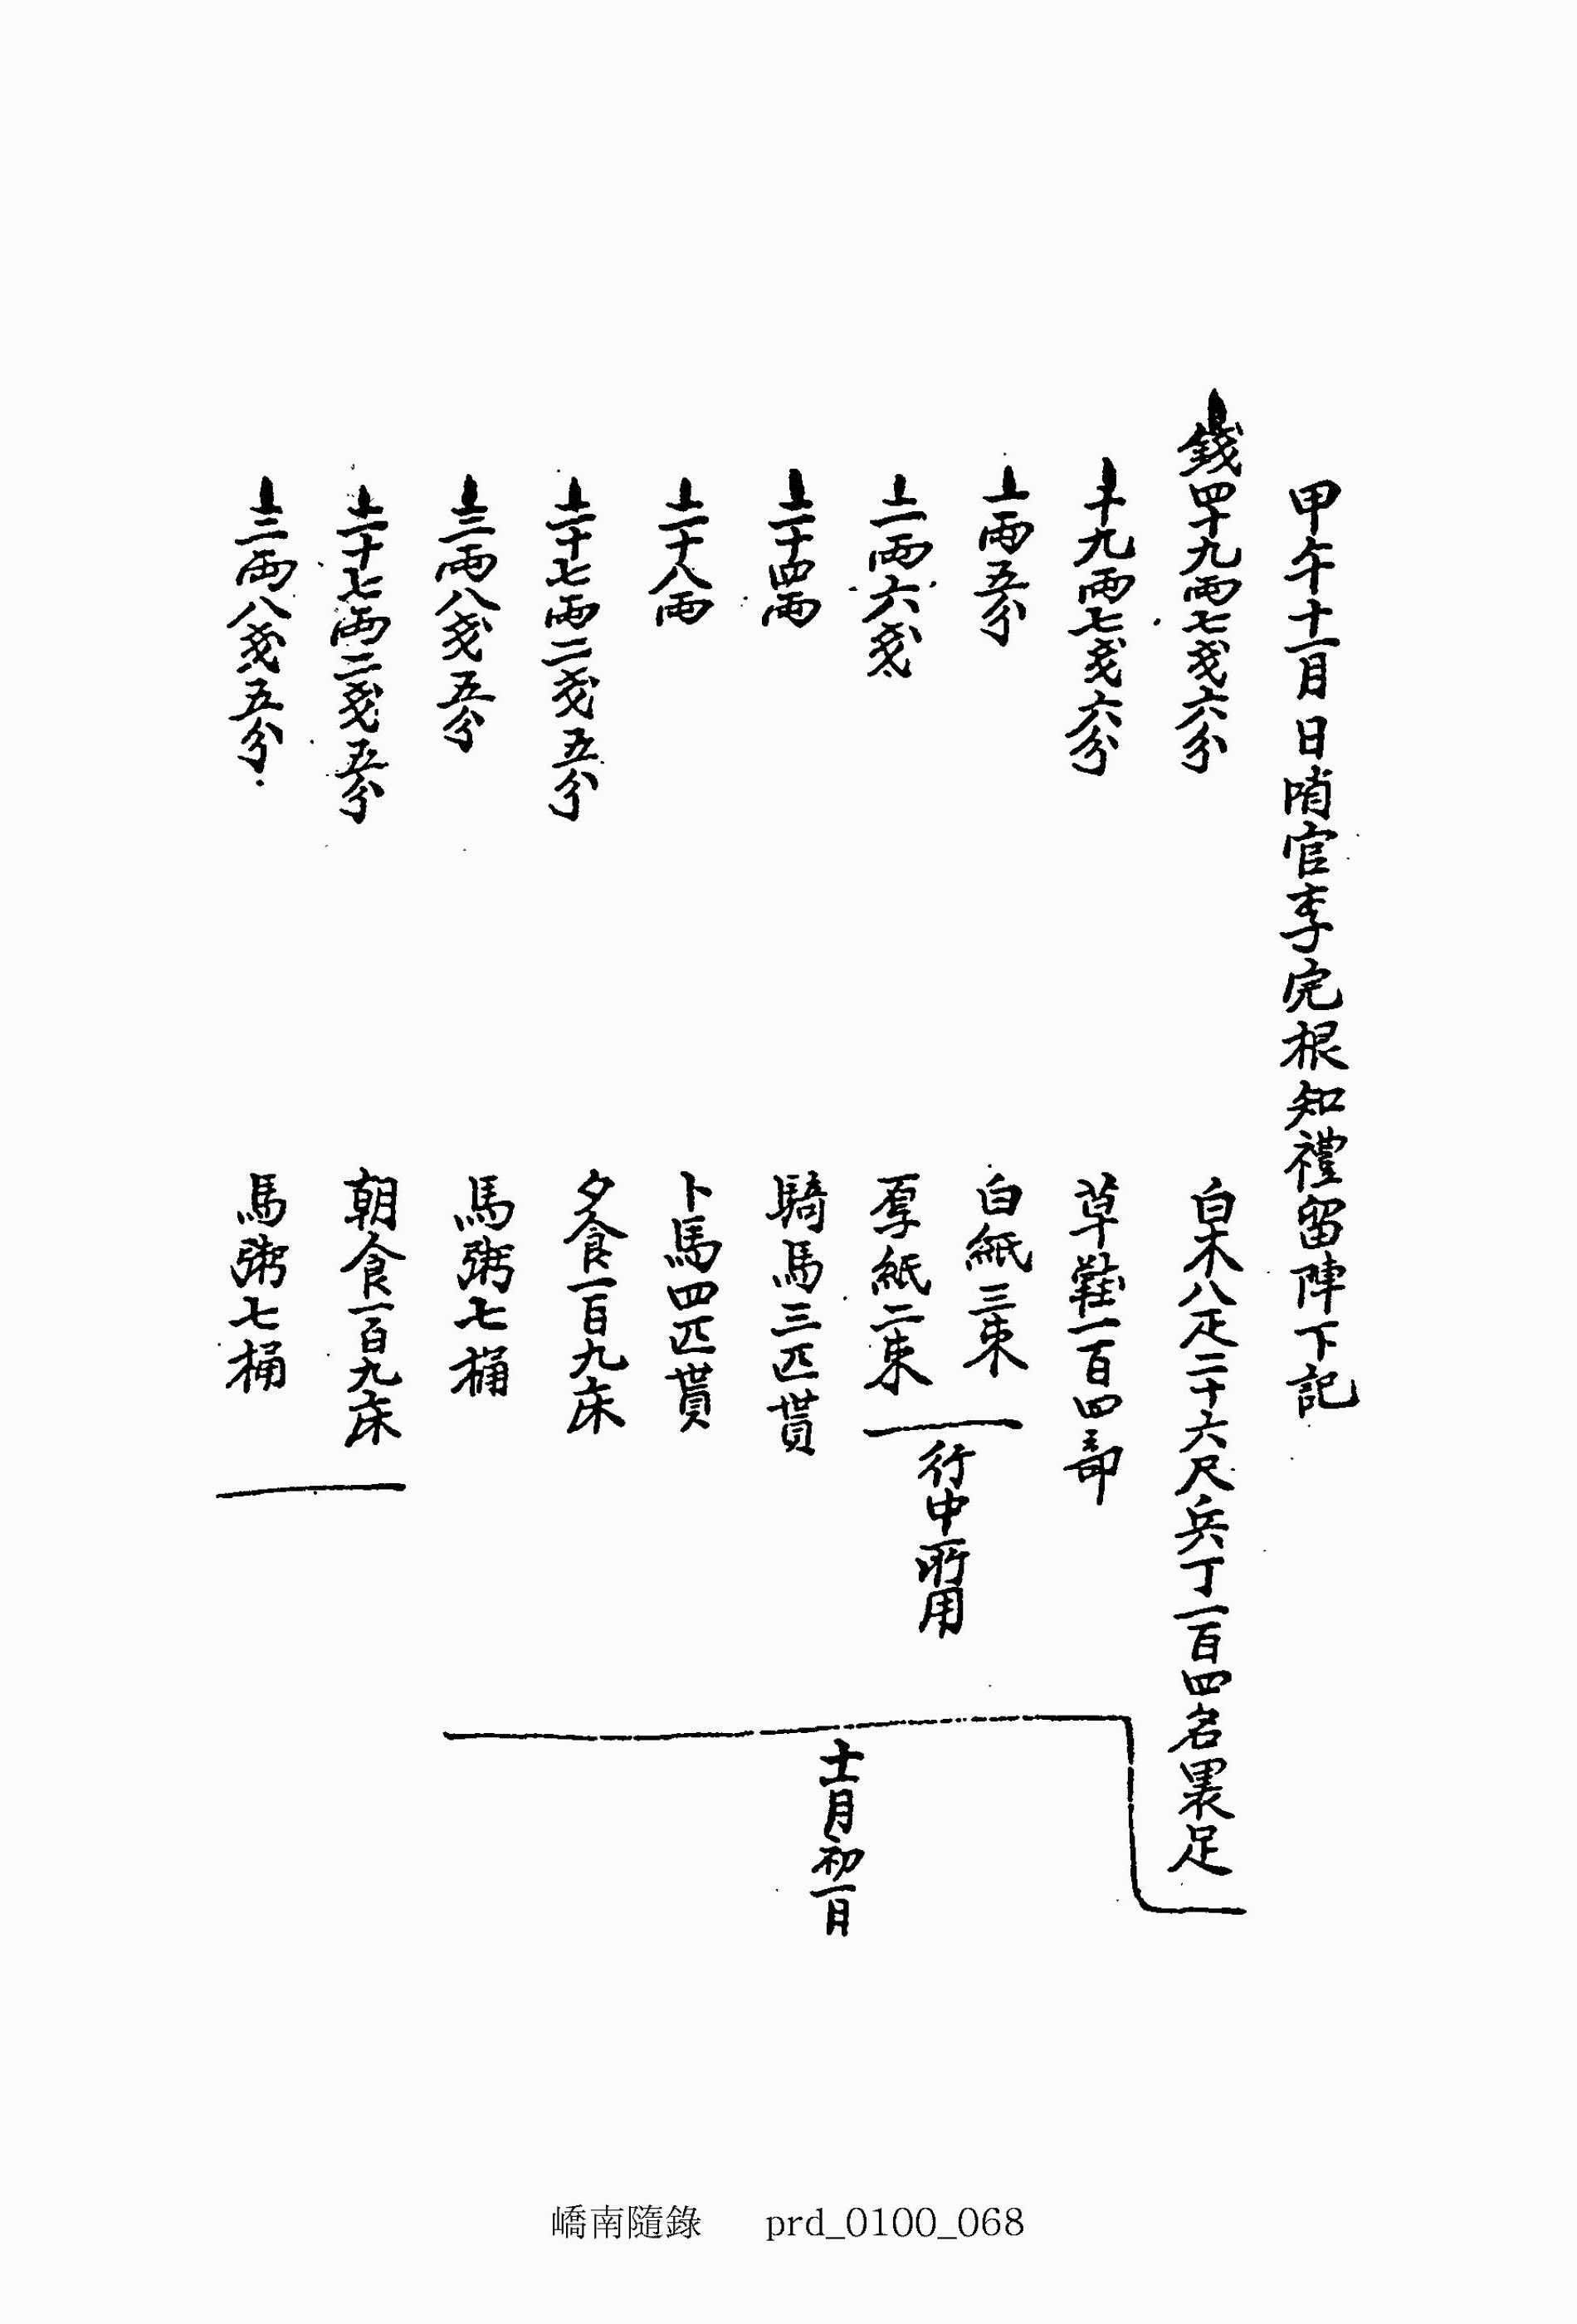 甲午十一月 日哨官李完根知禮留陣下記
錢四十九兩七戔六分 白木八疋二十六尺兵丁一百四名裹足
十九兩七戔六分 草鞋一百四部
一兩五分 白紙三束
二兩六戔 厚紙二束
行中所用
二十四兩 騎馬三匹貰
二十八兩 卜馬四匹貰
二十七兩二戔五分 夕食一百九床
三兩八戔五分 馬粥七桶
十一月初一日
二十七兩二戔五分 朝食一百九床
三兩八戔五分 馬粥七桶
嶠南隨錄 prd_0100_068